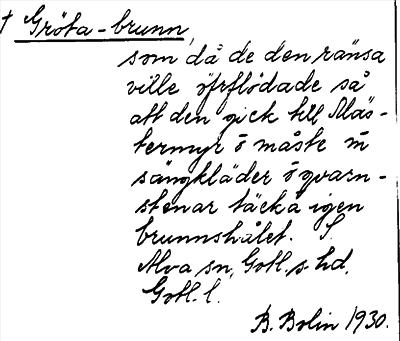 † Gröta-brunn,
som då de den ränsa
ville öfrflödade så
att den gick till Mäs-
termyr ō måste m̄
sängkläder ō qvarn-
stenar täcka igen
brunnshålet. S.
Alva sn, Gotl. s. hd,
Gotl. l.
B. Bolin 1930.